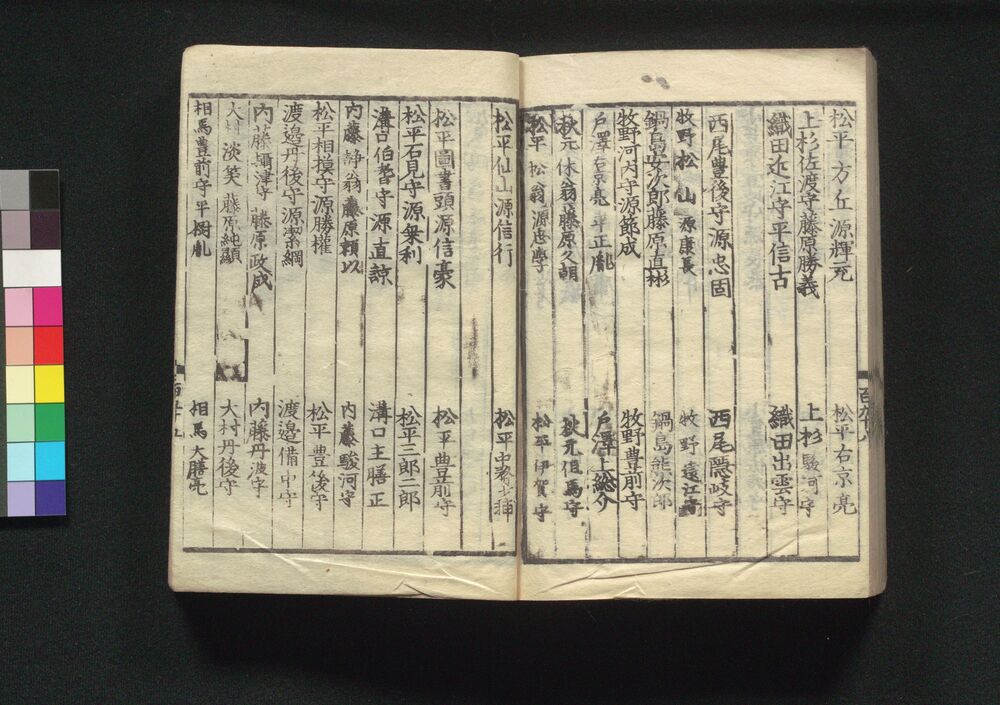 松平方丘源輝充 松平右京亮
上杉佐渡守藤原勝義 上杉駿河守
織田近江守平信古 織田出雲守
西尾豊後守源忠固 西尾隠岐守
牧野松山源康長 牧野遠江守
鍋島安次郎藤原直彬 鍋島熊次郎
牧野河内守源節成 牧野豊前守
戸澤右京亮平正胤 戸澤上総介
秋元休翁藤原久朝 秋元但馬守
松平松翁源忠學 松平伊賀守
松平仙山源信行 松平中務少輔
松平圖書頭源信豪 松平豊前守
松平石見守源乗利 松平三郎二郎
溝口伯耆守源直諒 溝口主膳正
内藤静翁藤原頼以 内藤駿河守
松平相模守源勝權 松平豊後守
渡邉丹後守源潔綱 渡邉備中守
内藤攝津守藤原政成 内藤丹波守
大村淡笑藤原純顯 大村丹後守
相馬豊前守平樹胤 相馬大膳亮